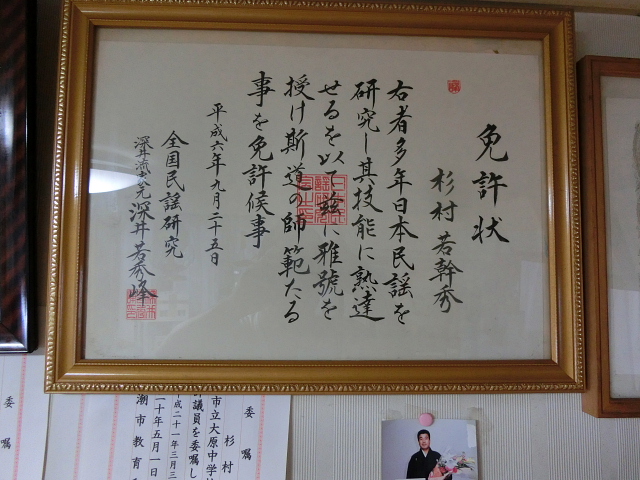 免許状
杉村若幹秀
右者多年日本民謡を
研究し其技能に熟達
せるを以て茲に雅號を
授け斯道の師範たる
事を免許候事
平成六年九月二十五日
全国民謡研究
深井若秀峰
委嘱
杉村
市立大原中学校
議員を委嘱し
成二十一年三月三
二十年五月一日
潮市教育
委嘱